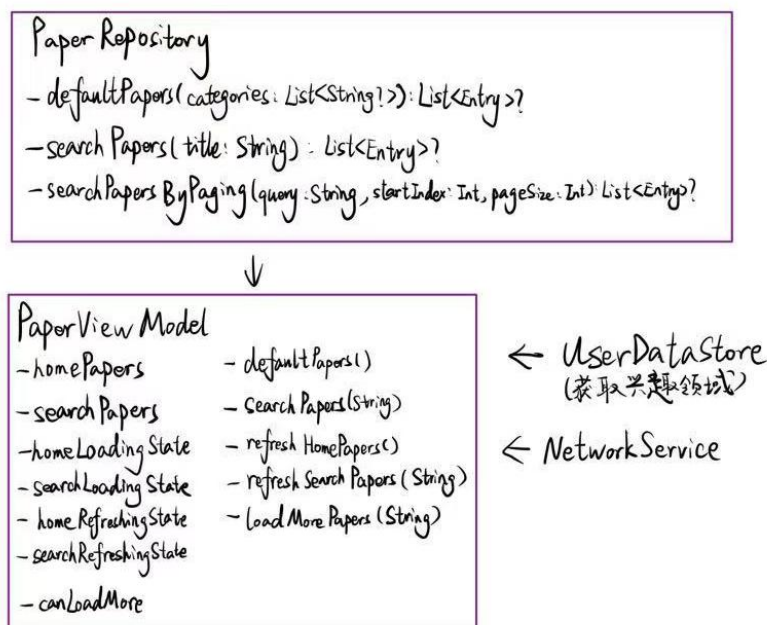 Paper Repository
- defaultPapers(categories: List<String?>): List<Entry>?
- searchPapers(title: String): List<Entry>?
- searchPapersByPaging(query: String, startIndex: Int, pageSize: Int): List<Entry>?
PaperViewModel
- homePapers
- searchPapers
- homeLoadingState
- searchLoadingState
- homeRefreshingState
- searchRefreshingState
- canLoadMore
- defaultPapers()
- searchPapers(String)
- refreshHomePapers()
- refreshSearchPapers(String)
- loadMorePapers(String)
← UserDataStore
(获取兴趣领域)
← NetworkService